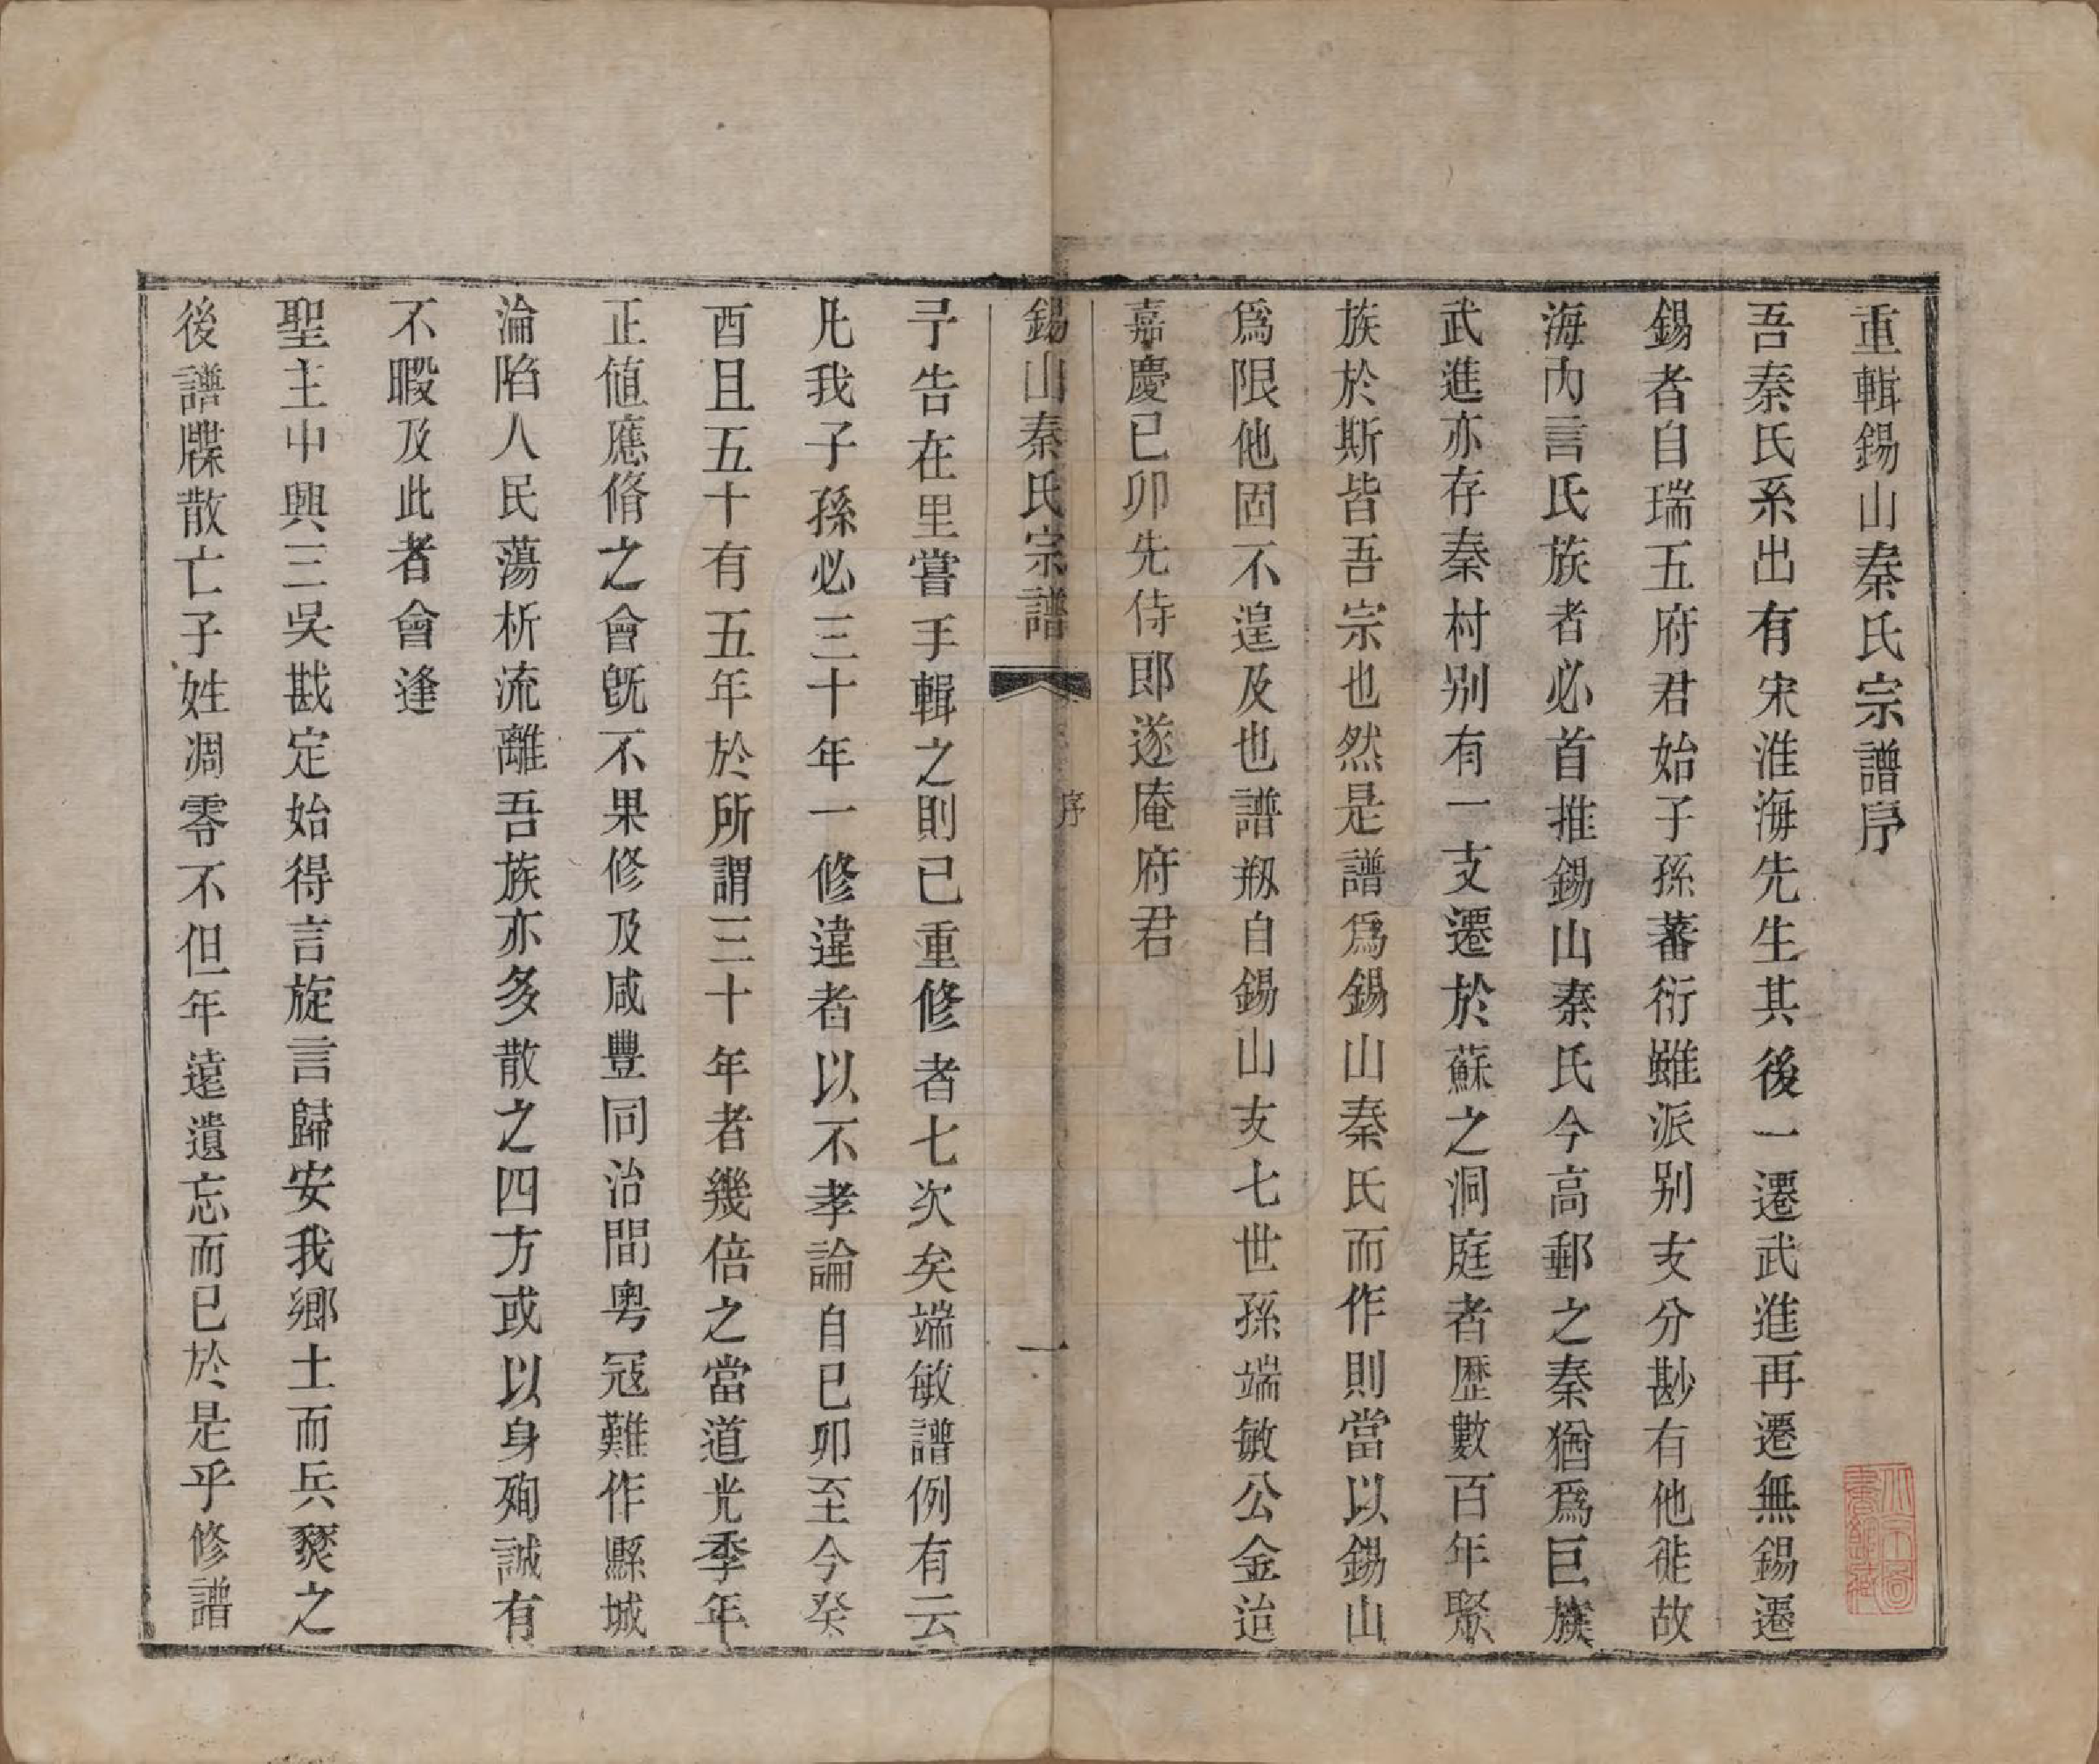 重輯錫山秦氏宗譜序
吾秦氏系出有宋淮海先生其後一遷武進再遷無錫遷
錫者自瑞五府君始子孫蕃衍雖派别支分尠有他徙故
海內言氏族者必首推錫山秦氏今高郵之秦猶爲巨族
武進亦存秦村别有一支遷於蘇之洞庭者歷數百年聚
族於斯皆吾宗也然是譜爲錫山秦氏而作則當以錫山
爲限他固不遑及也譜剏自錫山支七世孫端敏公金迨
嘉慶己卯先侍郎遂庵府君
錫山秦氏宗譜
序
一
予告在里嘗手輯之則已重修者七次矣端敏譜例有云
凡我子孫必三十年一修違者以不孝論自己卯至今癸
酉且五十有五年於所謂三十年者幾倍之當道光季年
正値應脩之會旣不果修及咸豐同治間粵冦難作縣城
淪陷人民蕩析流離吾族亦多散之四方或以身殉誠有
不暇及此者會逢
聖主中興三吳戡定始得言旋言歸安我鄉土而兵燹之
後譜牒散亡子姓凋零不但年遠遺忘而已於是乎修譜